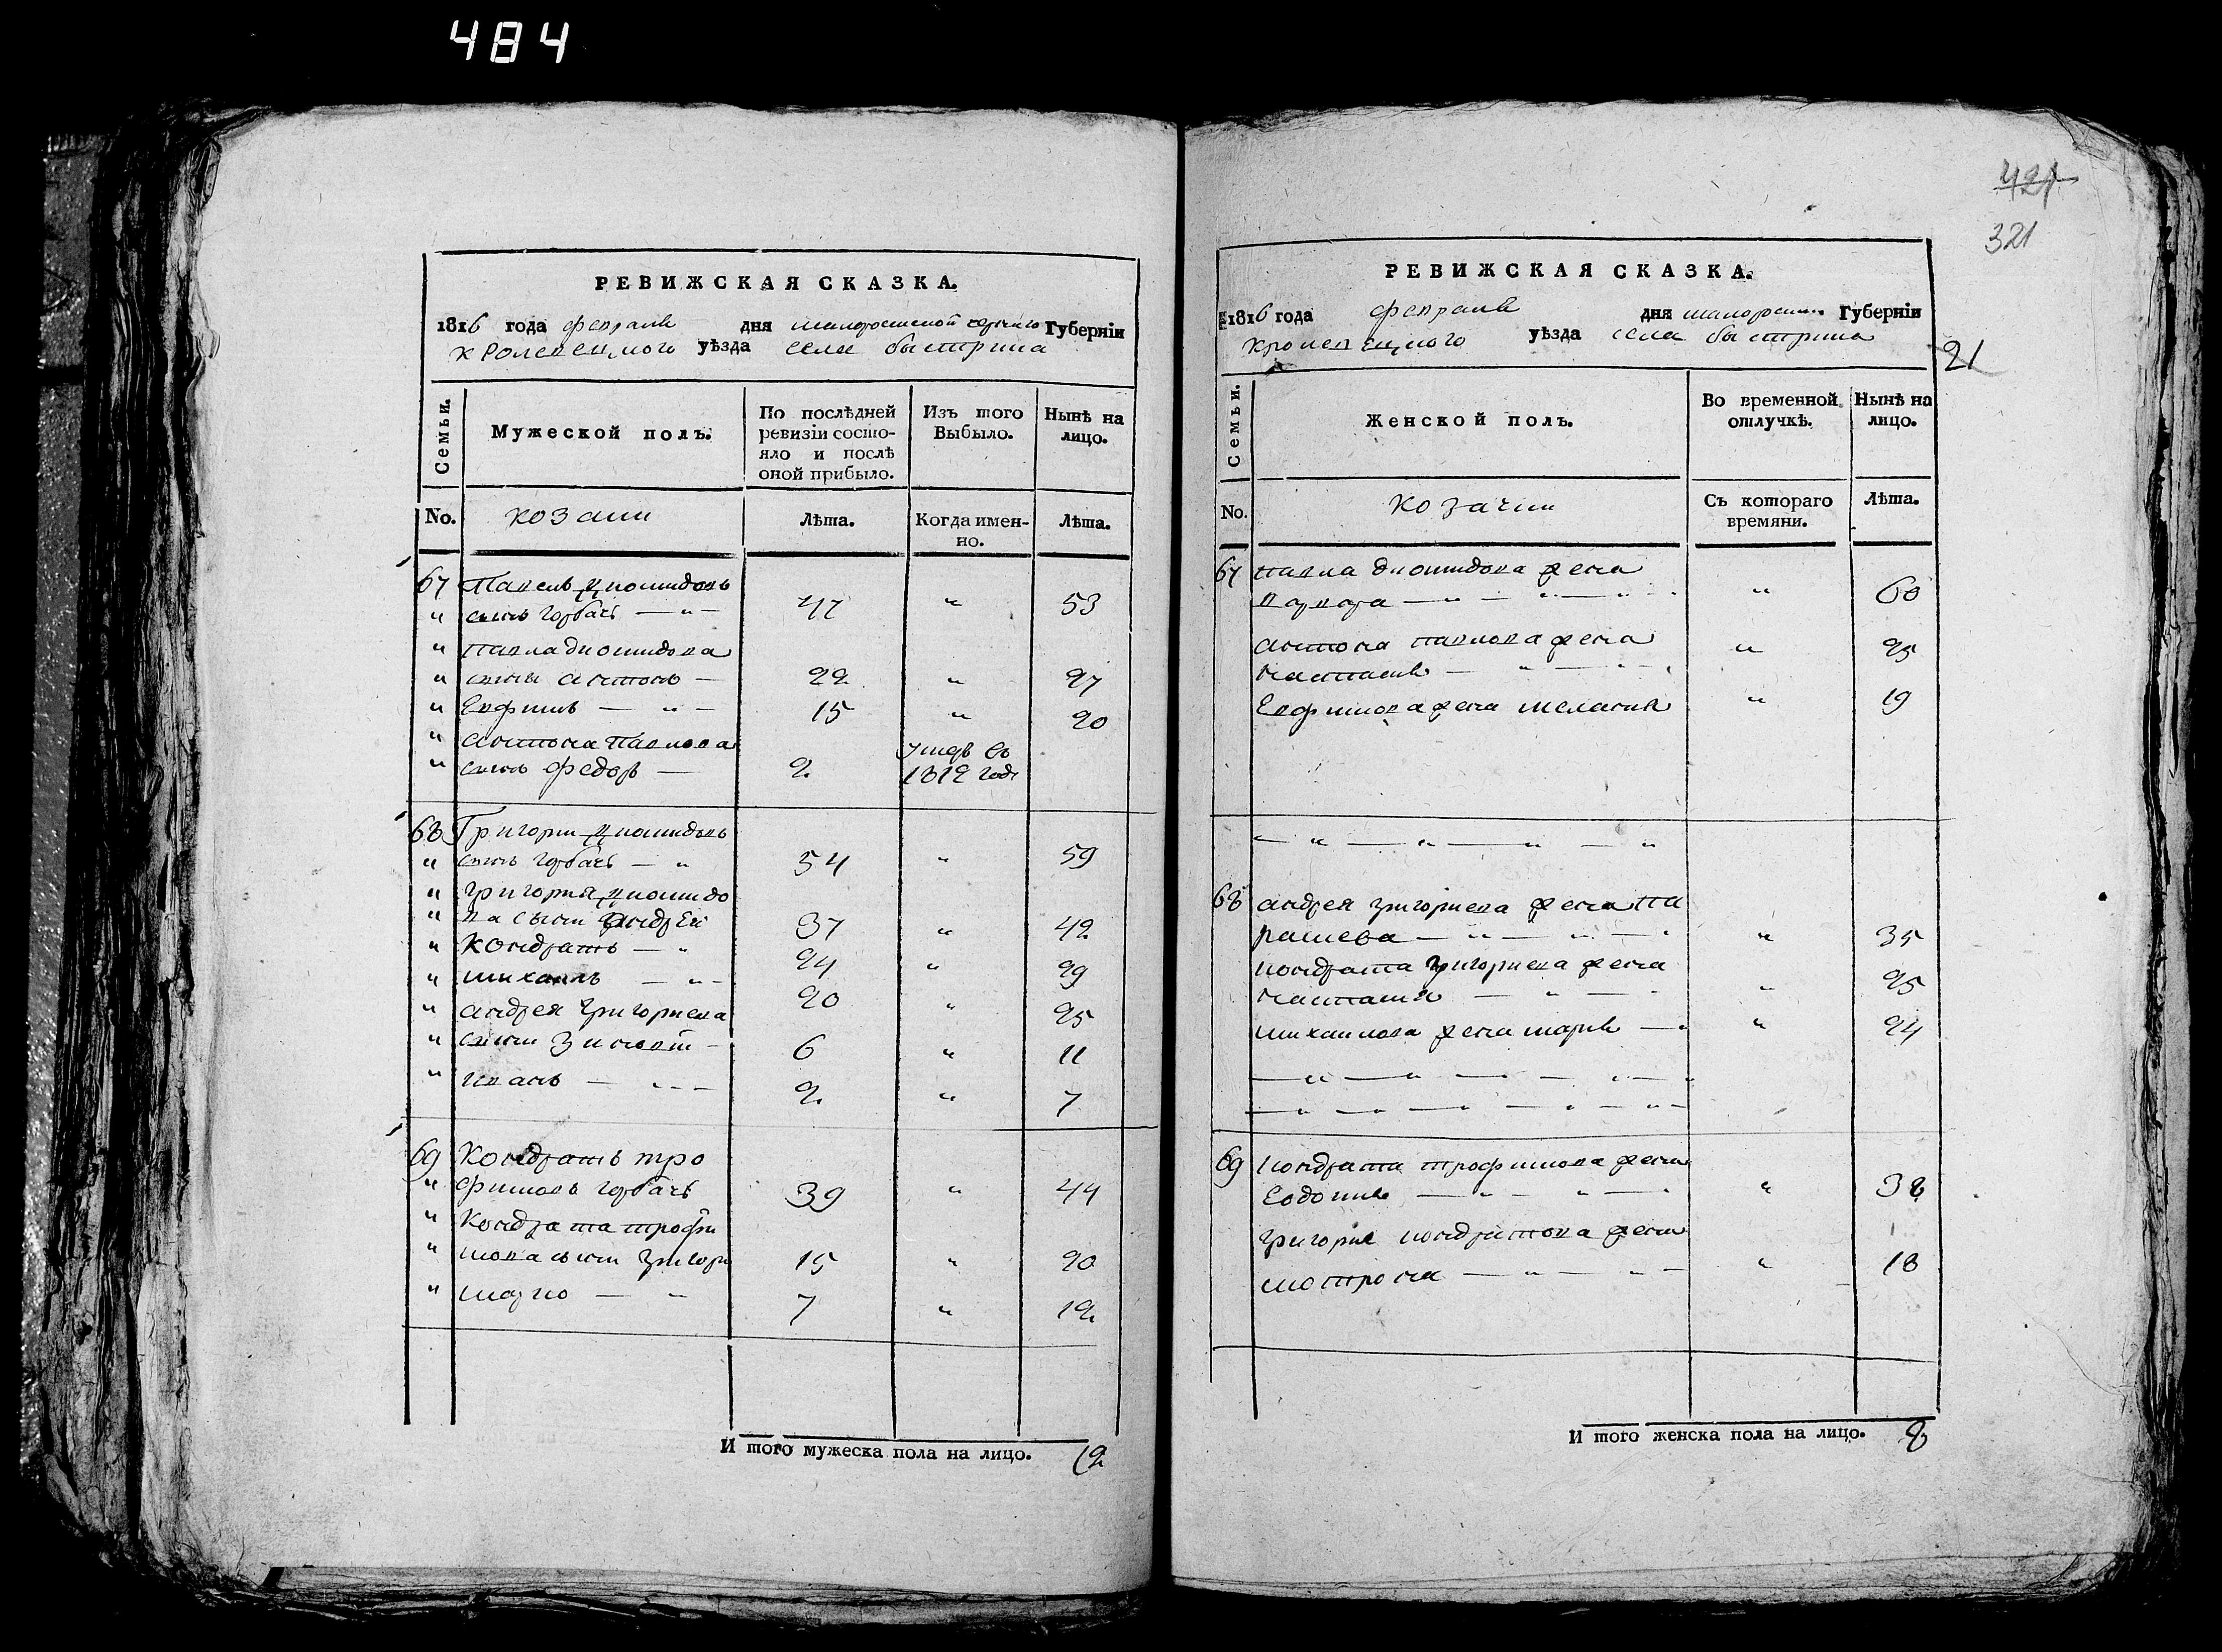 484
РЕВИЖСКАЯ СКАЗКА.
1816 года февраля дня малоросиской черниго Губерніи
кролевецкого уѣзда села быстрика
Семьи.
Мужеской полъ.
По послѣдней ревизіи состо-
яло и послѣ оной прибыло.
Изъ того Выбыло.
Нынѣ на лицо.
No.
козаки
Лѣта.
Когда имен-
но.
Лѣта.
67 Павелъ диомидовъ
" сынъ горбачъ — " — 47 " 53
" павла диомидова
" сыни антонъ — 22 " 27
" Евфимъ — " — 15 " 20
" антона павлова умеръ въ
" сынъ федоръ — 2 1812 годе
68 Григории диомидовъ
" сынъ горбачъ — " 54 " 59
" григория диомидо
" ва сыни андреи 37 " 42
" Кондратъ — " 24 " 29
" михаилъ — " — 20 " 25
" андрея григориева
" сыни Зиновии — 6 " 11
" иванъ — " — 2 " 7
69 Кондратъ тро
" фимовъ горбачъ 39 " 44
" Кондрата трофи
" мова сыни григори 15 " 20
" марко — " 7 " 12
И того мужеска пола на лицо. 12
421
321
РЕВИЖСКАЯ СКАЗКА.
1816 года февраля дня малорос Губерніи
кролевецкого уѣзда села быстрика
21
Семьи.
Женской полъ.
Во временной отлучкѣ.
Нынѣ на лицо.
No.
козачки
Съ котораго времяни.
Лѣта.
67 павла диомидова жена
варвара — " — " — " — " 60
антона павлова жена " 25
настасия — " — " —
Евфимова жена мелания " 19
— " — " — " — "
68 андрея григориева жена па
раскева — " — " — " 35
кондрата григориева жена
настасия — " — " 25
михаилова жена мария — " 24
— " — " — — " —
— " — " — " — " — " —
69 кондрата трофимова жена
Евдокия — " — " — " 38
григория кондратова жена
мотрона — " — " — " 18
И того женска пола на лицо. 8